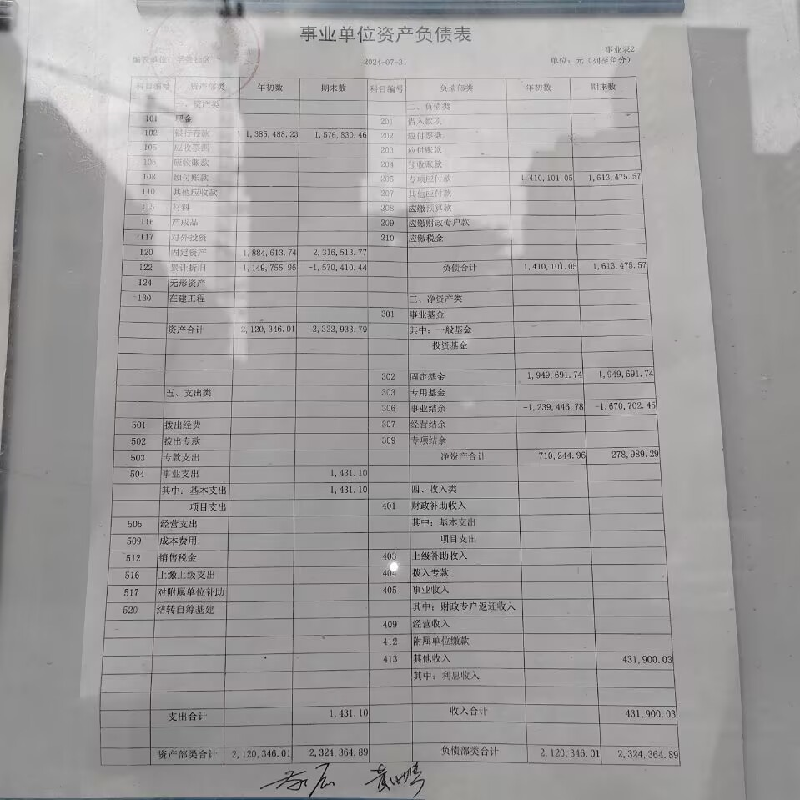 事业单位资产负债表
事业表2
2024-07-3
单位：元（列至角分）
科目编号 资产部类 年初数 期末数 科目编号 负债部类 年初数 期末数
一、资产类 二、负债类
101 现金 201 借入款项
102 银行存款 1,385,488.23 1,876,830.46 202 应付票据
105 应收票据 203 应付账款
应收账款 204 预收账款
预付账款 205 专项应付款 1,613,475.57
110 其他应收款 207 其他应付款
材料 208 应缴预算款
产成品 209 应缴财政专户款
117 对外投资 210 应缴税金
120 固定资产 1,884,613.74
122 累计折旧 -1,570,410.44 负债合计 1,613,475.57
124 无形资产
130 在建工程 三、净资产类
301 事业基金
资产合计 2,120,346.01 2,322,933.79 其中：一般基金
投资基金
302 固定基金 1,949,691.74 1,949,691.74
五、支出类 303 专用基金
306 事业结余 -1,239,446.78 -1,670,702.45
501 拨出经费 307 经营结余
502 拨出专款 309 专项结余
503 专款支出 净资产合计 710,244.96 278,989.29
504 事业支出 1,431.10
其中：基本支出 1,431.10 四、收入类
项目支出 401 财政补助收入
505 经营支出 其中：基本支出
509 成本费用 项目支出
512 销售税金 403 上级补助收入
516 上缴上级支出 404 拨入专款
517 对附属单位补助 405 事业收入
520 结转自筹基建 其中：财政专户返还收入
409 经营收入
412 附属单位缴款
413 其他收入 431,900.03
其中：利息收入
支出合计 1,431.10 收入合计 431,900.03
资产部类合计 2,120,346.01 2,324,364.89 负债部类合计 2,120,346.01 2,324,364.89